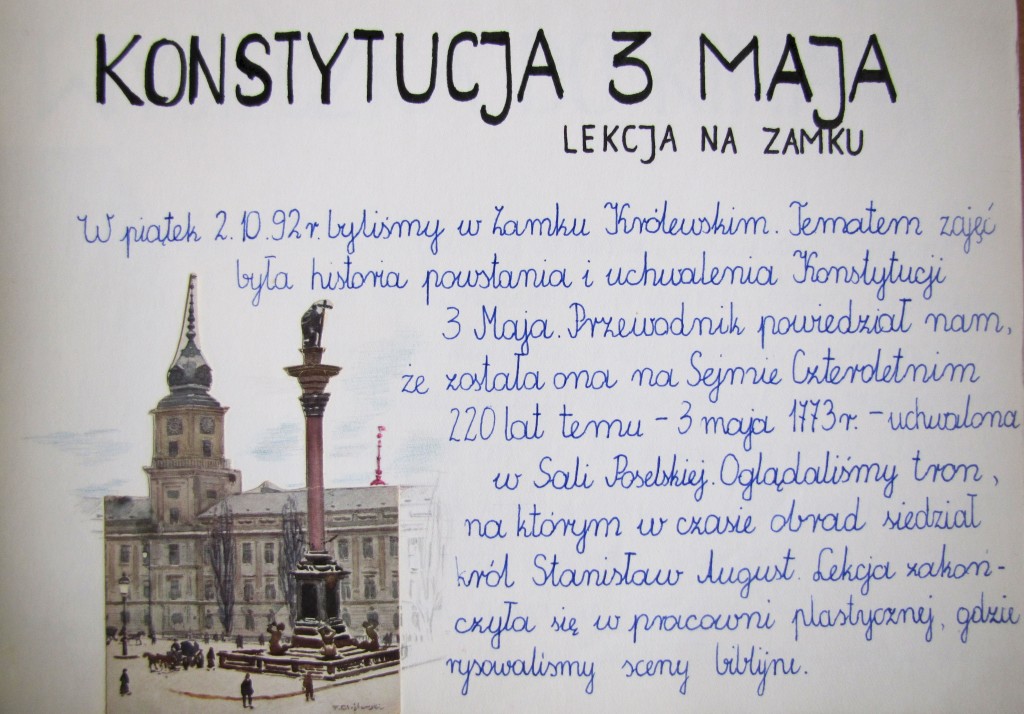 KONSTYTUCJA 3 MAJA
LEKCJA NA ZAMKU
W piątek 2.10.92r. byliśmy w Zamku Królewskim. Tematem zajęć
była historia powstania i uchwalenia Konstytucji
3 Maja. Przewodnik powiedział nam,
że została ona na Sejmie Czteroletnim
220 lat temu - 3 maja 1773r. - uchwalona
w Sali Poselskiej. Oglądaliśmy tron,
na którym w czasie obrad siedział
król Stanisław August. Lekcja zakoń-
czyła się w pracowni plastycznej, gdzie
rysowaliśmy sceny biblijne.